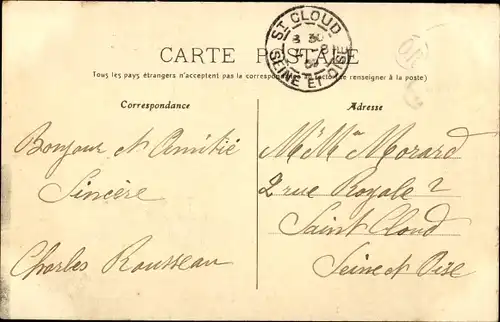 CARTE POSTALE
Tous les pays étrangers n'acceptent pas la correspondance au recto (se renseigner à la poste)
ST CLOUD
SEINE ET OISE
Correspondance
Bonjour et Amitié
Sincère
Charles Rousseau
Adresse
Melle Morard
2 rue Royale 2
Saint Cloud
Seine et Oise